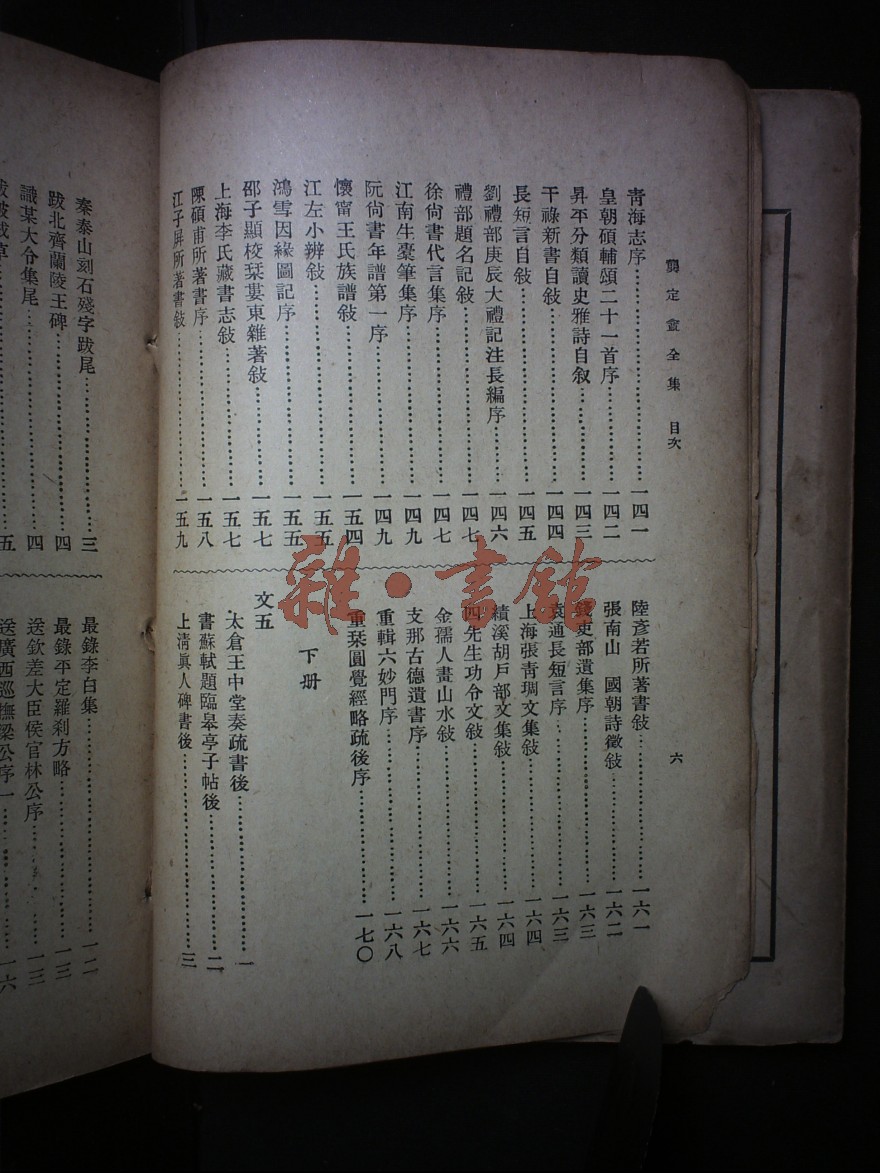 龔定盦全集 目次
六
青海志序⋯⋯一四一
皇朝碩輔頌二十一首序⋯⋯一四二
昇平分類讀史雅詩自叙⋯⋯一四三
干祿新書自敍⋯⋯一四四
長短言自敍⋯⋯一四五
劉禮部庚辰大禮記注長編序⋯⋯一四六
禮部題名記敍⋯⋯一四七
徐尙書代言集序⋯⋯一四七
江南生橐筆集序⋯⋯一四九
阮尙書年譜第一序⋯⋯一四九
懷甯王氏族譜敍⋯⋯一五四
江左小辨敍⋯⋯一五五
鴻雪因緣圖記序⋯⋯一五五
邵子顯校栞婁東雜著敍⋯⋯一五七
上海李氏藏書志敍⋯⋯一五七
陳碩甫所著書序⋯⋯一五八
江子屛所著書敍⋯⋯一五九
陸彥若所著書敍⋯⋯一六一
張南山 國朝詩徵敍⋯⋯一六二
錢吏部遺集序⋯⋯一六三
袁通長短言序⋯⋯一六三
上海張靑琱文集敍⋯⋯一六四
績溪胡戶部文集敍⋯⋯一六四
四先生功令文敍⋯⋯一六五
金孺人畫山水敍⋯⋯一六六
支那古德遺書序⋯⋯一六七
重輯六妙門序⋯⋯一六八
重栞圓覺經略疏後序⋯⋯一七〇
下册
文五
太倉王中堂奏疏書後⋯⋯一
書蘇軾題臨皋亭子帖後⋯⋯二
上淸眞人碑書後⋯⋯三
秦泰山刻石殘字跋尾⋯⋯三
跋北齊蘭陵王碑⋯⋯四
識某大令集尾⋯⋯四
五
最錄李白集⋯⋯一二
最錄平定羅刹方略⋯⋯一三
送欽差大臣侯官林公序⋯⋯一三
送廣西巡撫梁公序一⋯⋯一六
雜·書館